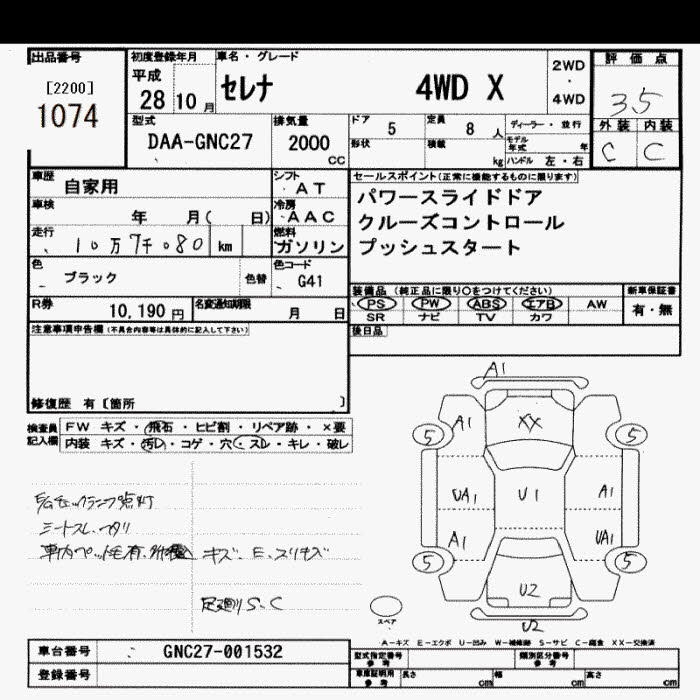 出品番号
[2200]
1074
初度登録年月
平成
28 10 月
車名・グレード
セレナ 4WD X
2WD
・
4WD
評価点
3.5
外装 内装
C C
型式
DAA-GNC27
排気量
2000
CC
ドア
5
定員
8 人
形状
積載
kg
ディーラー・並行
モデル年式 年
ハンドル 左・右
車歴
自家用
シフト
AT
車検
年 月( 日)
冷房
AAC
走行
10万7千080 km
燃料
ガソリン
色
ブラック
色替
色コード
G41
R券
10,190 円
名変通知期限
月 日
セールスポイント(正常に機能するものに限ります)
パワースライドドア
クルーズコントロール
プッシュスタート
装備品 (純正品に限り○をつけてください)
PS PW ABS エアB AW
SR ナビ TV カワ
新車保証書
有・無
後日品
注意事項申告欄 (不具合内容等は具体的に記入して下さい)
修復歴 有〔箇所 〕
検査員記入欄
FW キズ・飛石・ヒビ割・リペア跡・×要
内装 キズ・汚レ・コゲ・穴・スレ・キレ・破レ
点灯
シートスレ、
車内ペット毛有、
キズ、E、スリキズ
足廻りS、C
A1
A1
XX
5
5
UA1
U1
A1
A1
UA1
5
5
U2
U2
スペア
A-キズ E-エクボ U-凹み W-補修跡 S-サビ C-腐食 XX-交換済
車台番号
GNC27-001532
登録番号
型式指定番号 参考
類別区分番号 参考
車庫証明用 参考
長さ cm
幅 cm
高さ cm